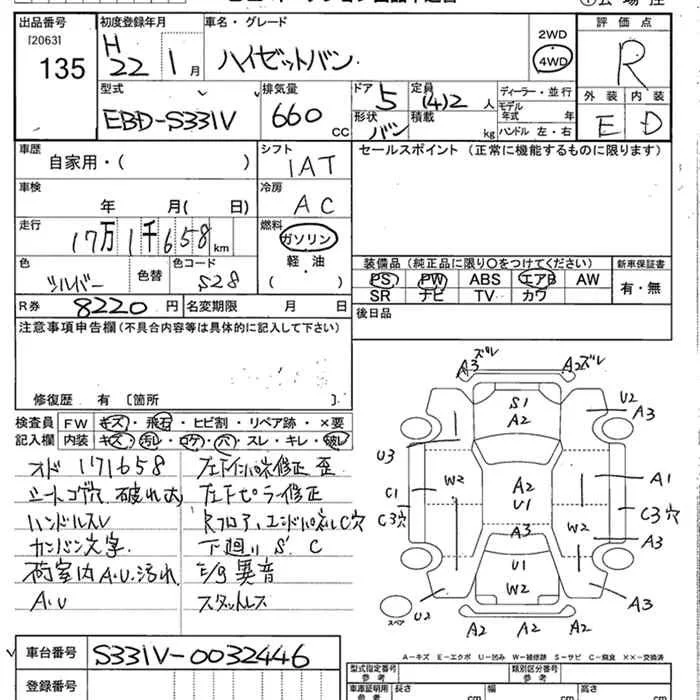 出品番号 初度登録年月 車名・グレード 評価点
[2063] H
135 22 1月 ハイゼットバン 2WD R
4WD
型式 排気量 ドア 定員 ディーラー・並行 外装 内装
5 (4)2人 モデル年式 年
EBD-S331V 660cc 形状 積載 ハンドル 左・右 E D
バン kg
車歴 シフト セールスポイント(正常に機能するものに限ります)
自家用・( ) IAT
車検 冷房
年 月( 日) AC
走行 燃料
17万1千658km ガソリン
色 色替 色コード 軽・油 装備品(純正品に限り○をつけてください) 新車保証書
シルバー S28 ( ) PS PW ABS エアB AW 有・無
R券 8220円 名変期限 月 日 SR ナビ TV カワ
注意事項申告欄(不具合内容等は具体的に記入して下さい) 後日品
修復歴 有 [箇所 ]
検査員 FW キズ・飛石・ヒビ割・リペア跡・×要
記入欄 内装 キズ・汚れ・コゲ・穴・スレ・キレ・破レ
オド 171658
シートコゲ穴 破れ大
ハンドルスレ
カンバン文字
荷室内A.U.汚れ
A.U
左下インパネ修正 歪
左下ピラー修正
Rフロア、エンドパネルC穴
下廻りS.C
E/g異音
スタッドレス
A3ズレ A2ズレ
S1
A2
U2
A3
U3
W2
A2
U1
A1
C1
C3穴
C3穴
A3
W2
A3
U1
W2
U2
A2
A2
A3
スペア
A-キズ E-エクボ U-凹み W-補修跡 S-サビ C-腐食 ××-交換済
車台番号 S331V-0032446
登録番号
型式指定番号 参考 類別区分番号 参考
車庫証明用 参考 長さ cm 幅 cm 高さ cm